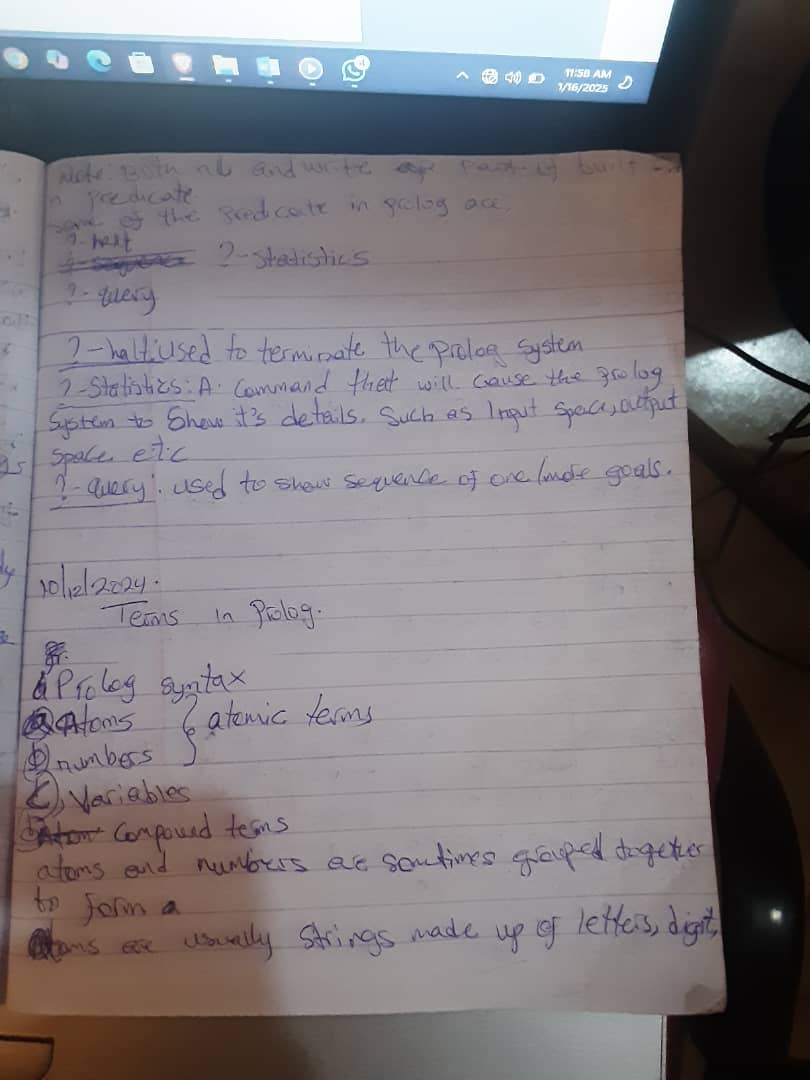 11:58 AM
1/16/2025
Note: Both nl and write are part of built-in
n predicate
some of the predicate in prolog are,
?- halt
?- statistics
?- query
?-halt: Used to terminate the prolog system
?-Statistics: A. Command that will cause the prolog
System to Show it's details. Such as Input Space, output
Space etc
?- query: used to show sequence of one/more goals.
10/12/2024.
Terms in Prolog.
Prolog syntax
a) Atoms } atomic terms
b) numbers
C), Variables
Compound terms
atoms and numbers are sometimes grouped together
to form a
Atoms are usually Strings made up of letters, digit,